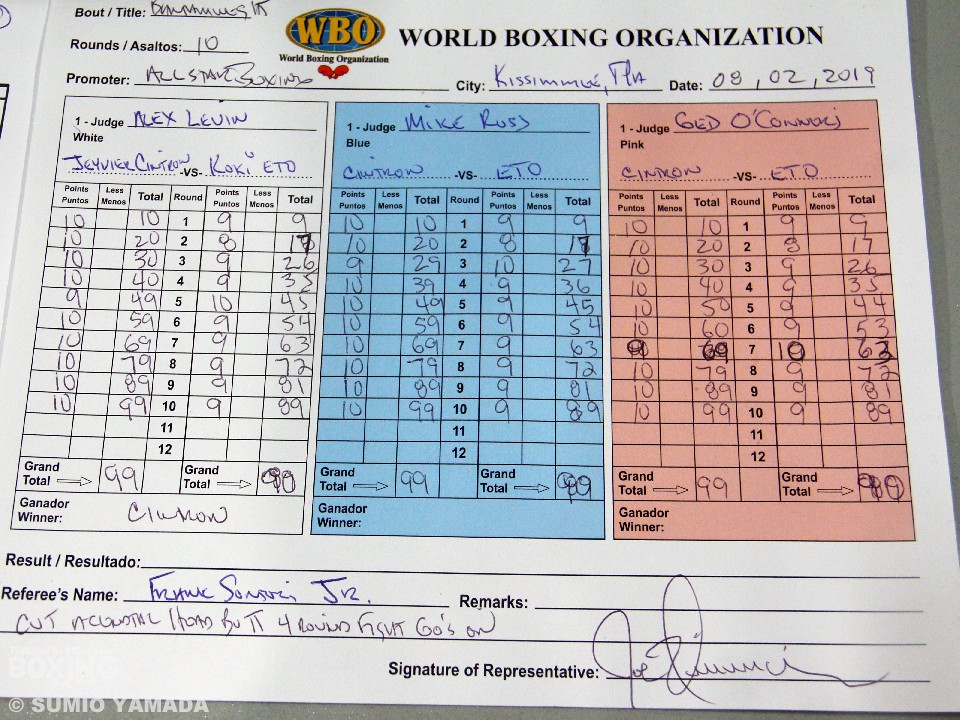 Bout / Title:
Rounds / Asaltos: 10
WBO
World Boxing Organization
WORLD BOXING ORGANIZATION
Promoter: ALL STAR BOXING City: KISSIMMEE, FLA Date: 08, 02, 2019
1 - Judge ALEX LEVIN 1 - Judge MIKE ROSS 1 - Judge GED O'CONNOR
White Blue Pink
JEYVIER CINTRON -VS- KOKI ETO CINTRON -VS- ETO CINTRON -VS- ETO
Points Puntos Less Menos Total Round Points Puntos Less Menos Total Points Puntos Less Menos Total Round Points Puntos Less Menos Total Points Puntos Less Menos Total Round Points Puntos Less Menos Total
10 10 1 9 9 10 10 1 9 9 10 10 1 9 9
10 20 2 8 17 10 20 2 8 17 10 20 2 8 17
10 30 3 9 26 9 29 3 10 27 10 30 3 9 26
10 40 4 9 35 10 39 4 9 36 10 40 4 9 35
9 49 5 10 45 10 49 5 9 45 10 50 5 9 44
10 59 6 9 54 10 59 6 9 54 10 60 6 9 53
10 69 7 9 63 10 69 7 9 63 9 69 7 10 63
10 79 8 9 72 10 79 8 9 72 10 79 8 9 72
10 89 9 9 81 10 89 9 9 81 10 89 9 9 81
10 99 10 9 89 10 99 10 9 89 10 99 10 9 89
11 11 11
12 12 12
Grand Total 99 Grand Total Grand Total 99 Grand Total Grand Total 99 Grand Total
Ganador Winner: CINTRON Ganador Winner: Ganador Winner:
Result / Resultado:
Referee's Name: FRANK Jr. Remarks:
CUT ACCIDENTAL HEAD BUTT 4 ROUND FIGHT GO'S ON
BOXING
Signature of Representative: Joe
© SUMIO YAMADA